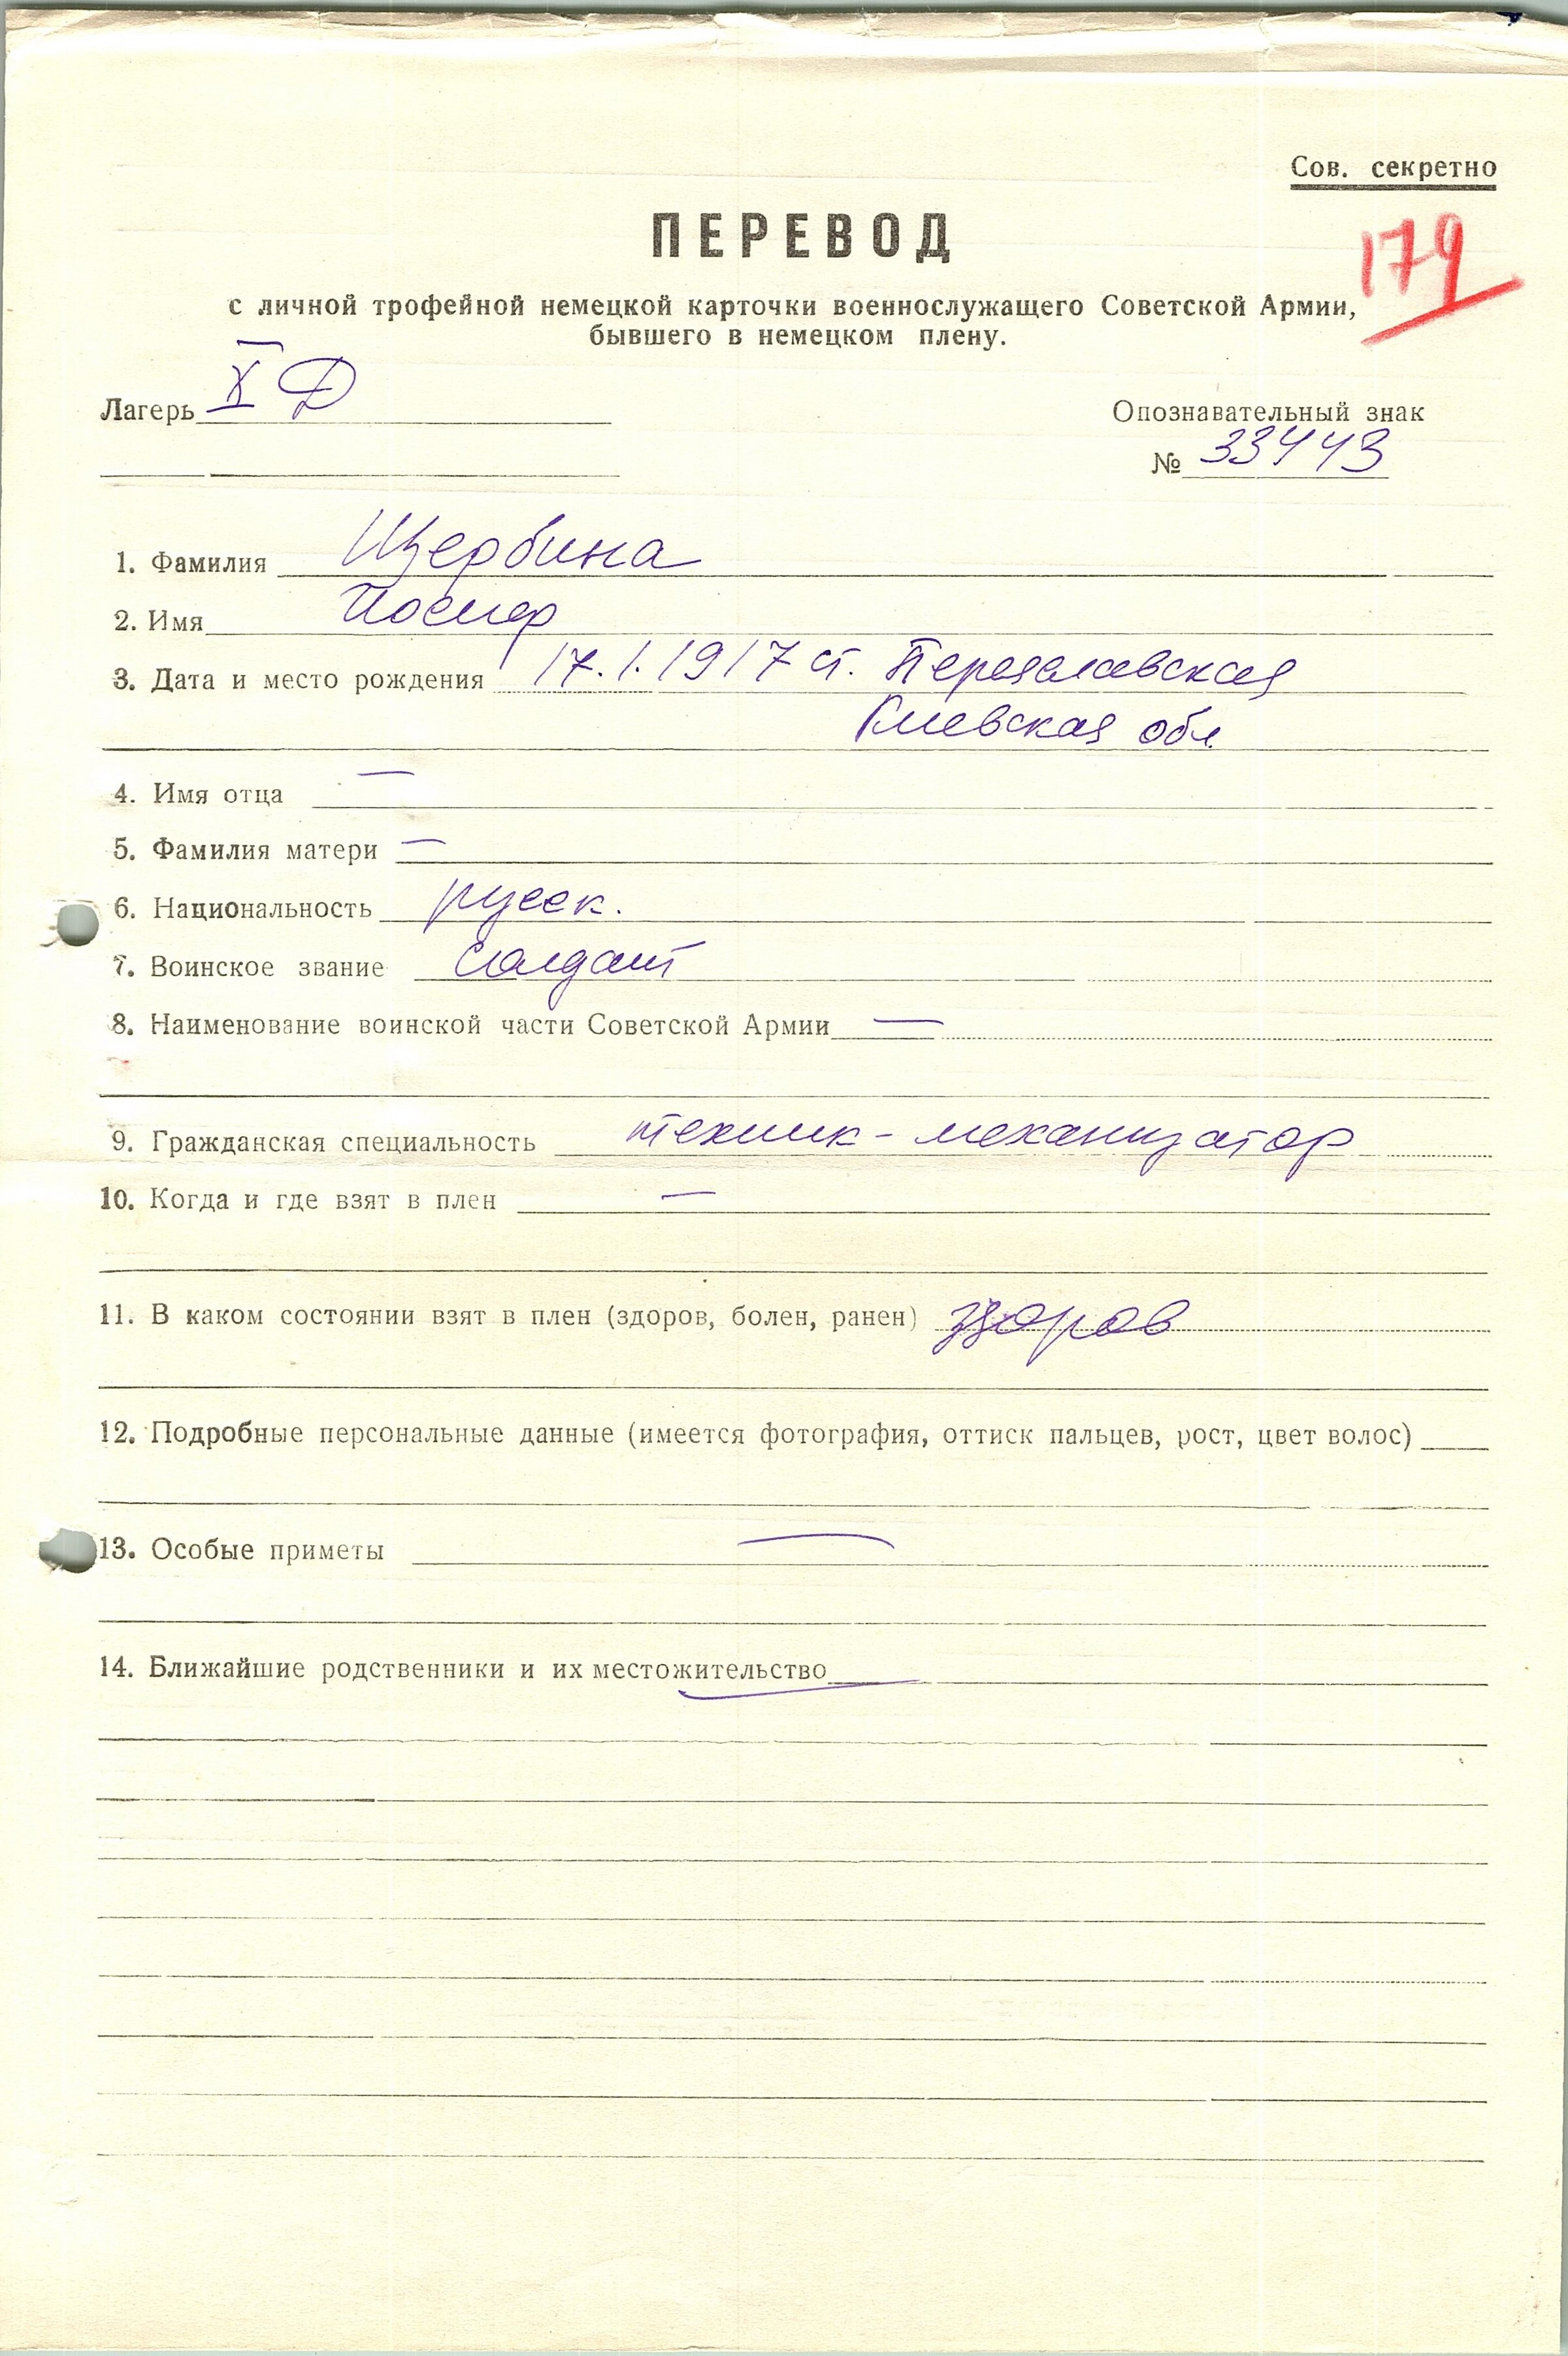 Сов. секретно
ПЕРЕВОД
179
с личной трофейной немецкой карточки военнослужащего Советской Армии,
бывшего в немецком плену.
Лагерь X Д
Опознавательный знак
№ 33443
1. Фамилия Щербина
2. Имя Иосиф
3. Дата и место рождения 17.1.1917 ст. Переяславская
Киевская обл.
4. Имя отца —
5. Фамилия матери —
6. Национальность русск.
7. Воинское звание солдат
8. Наименование воинской части Советской Армии —
9. Гражданская специальность техник-механизатор
10. Когда и где взят в плен —
11. В каком состоянии взят в плен (здоров, болен, ранен) здоров
12. Подробные персональные данные (имеется фотография, оттиск пальцев, рост, цвет волос)
13. Особые приметы —
14. Ближайшие родственники и их местожительство